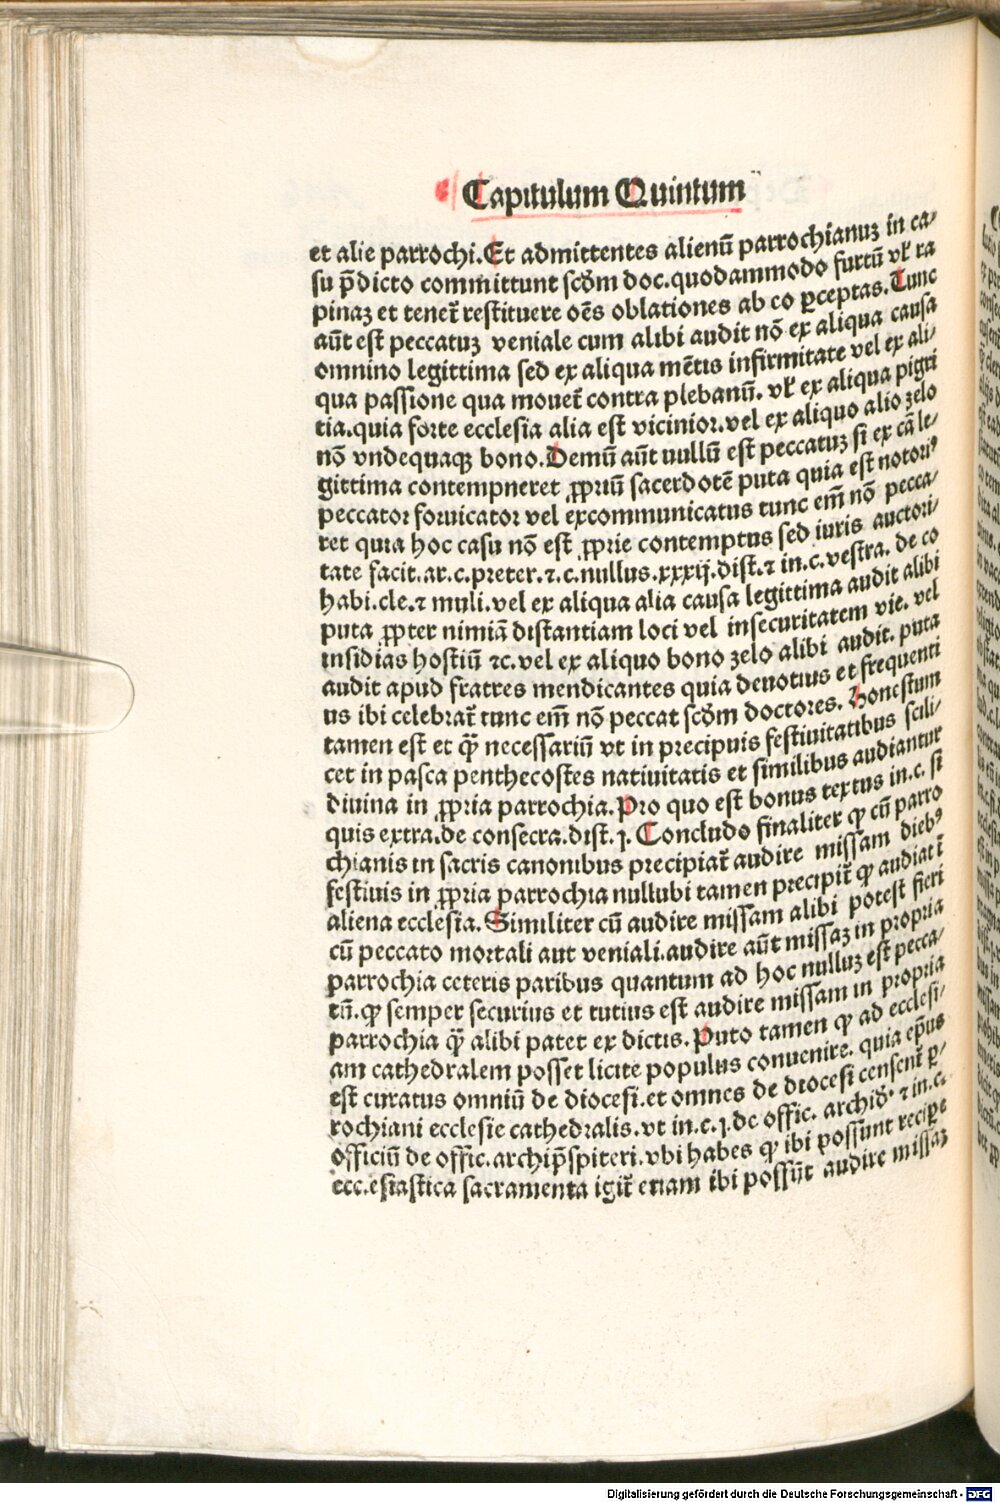 Capitulum Quintum
et alie parrochi. Et admittentes alienū parrochianuʒ in ca-
su p̄dicto committunt scd̄m doc. quodammodo furtū vl̓ ra
pinaʒ et tenet̄ restituere oēs oblationes ab eo ꝑceptas. Tunc
aūt est peccatuʒ veniale cum alibi audit nō ex aliqua causa
omnino legittima sed ex aliqua mētis infirmitate vel ex ali-
qua passione qua mouet̄ contra plebanū. vl̓ ex aliqua pigri
tia. quia forte ecclesia alia est vicinior. vel ex aliquo alio zelo
nō vndequaqꝫ bono. Demū aūt nullū est peccatuʒ si ex cā le-
gittima contempneret ꝓpriū sacerdotē puta quia est notoriꝰ
peccator fornicator vel excommunicatus tunc em̄ nō pecca-
ret quia hoc casu nō est ꝓprie contemptus sed iuris auctori-
tate facit. ar. c. preter. ⁊. c. nullus. xxxij. dist. ⁊ in. c. vestra. de co
habi. cle. ⁊ muli. vel ex aliqua alia causa legittima audit alibi
puta ꝓpter nimiā distantiam loci vel insecuritatem vie. vel
insidias hostiū ⁊c. vel ex aliquo bono zelo alibi audit. puta
audit apud fratres mendicantes quia deuotius et frequenti
us ibi celebrat̄ tunc em̄ nō peccat scd̄m doctores. Honestum
tamen est et qꝫ̄ necessariū vt in precipuis festiuitatibus scili-
cet in pasca penthecostes natiuitatis et similibus audiantur
diuina in ꝓpria parrochia. Pro quo est bonus textus in. c. si
quis extra. de consecra. dist. j. Concludo finaliter ꝙ cū parro
chianis in sacris canonibus precipiat̄ audire missam diebꝰ
festiuis in ꝓpria parrochia nullubi tamen precipit̄ ꝙ audiat ī
aliena ecclesia. Similiter cū audire missam alibi potest fieri
cū peccato mortali aut veniali. audire aūt missaʒ in propria
parrochia ceteris paribus quantum ad hoc nulluʒ est pecca-
tū. ꝙ semper securius et tutius est audire missam in propria
parrochia qꝫ̄ alibi patet ex dictis. Puto tamen ꝙ ad ecclesi-
am cathedralem posset licite populus conuenire. quia ep̄us
est curatus omniū de diocesi. et omnes de diocesi censent̄ ꝑ-
rochiani ecclesie cathedralis. vt in. c. j. de offic. archid̓. ⁊ in. c.
officiū de offic. archip̄spiteri. vbi habes ꝙ ibi possunt recipe
ecclesiastica sacramenta igit̄ etiam ibi possūt audire missaʒ
Digitalisierung gefördert durch die Deutsche Forschungsgemeinschaft - DFG